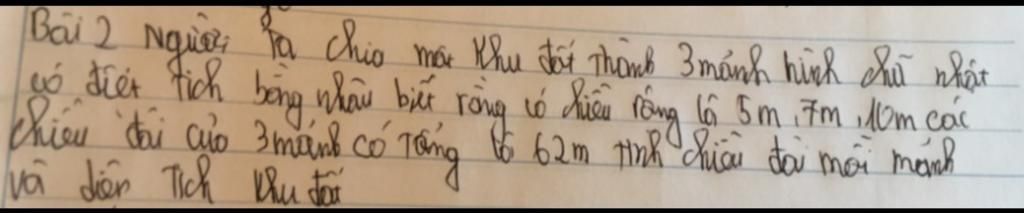 Bài 2 Người ta chia một khu đất thành 3 mảnh hình chữ nhật
có diện tích bằng nhau biết rằng có chiều rộng là 5m, 7m, 10m các
chiều dài của 3 mảnh có tổng là 62m tính chiều dài mỗi mảnh
và diện tích khu đất